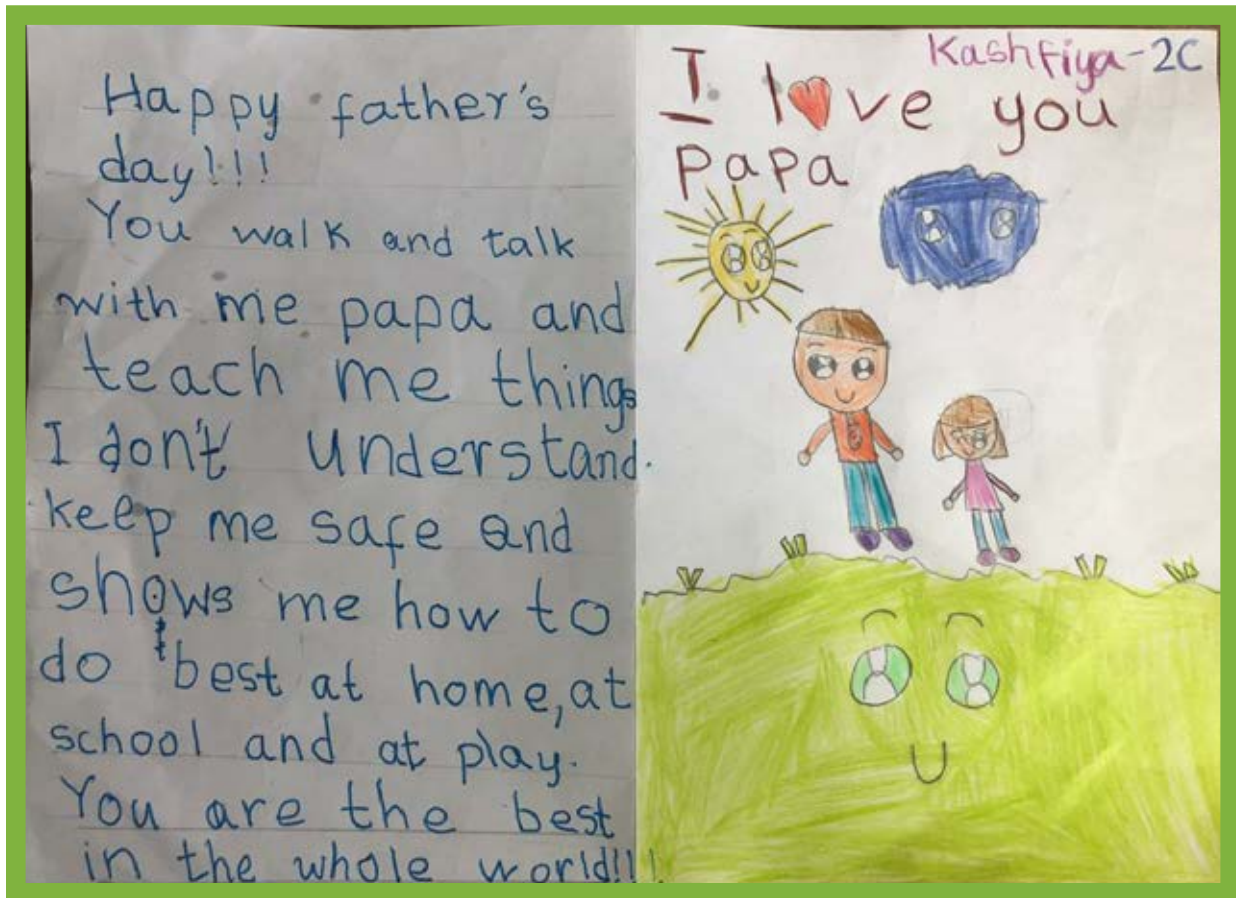 Happy father's
day!!!
You walk and talk
with me papa and
teach me things
I don't understand.
keep me safe and
shows me how to
do best at home, at
school and at play.
You are the best
in the whole world!!!
Kashfiya-2C
I love you
papa